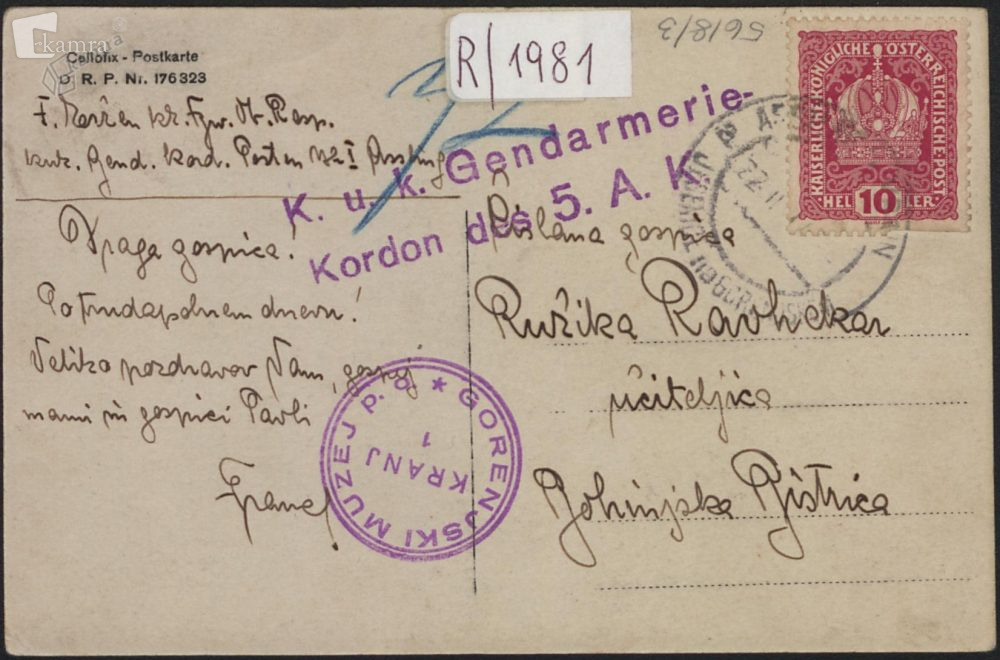 kamra
kamra
Cellofix - Postkarte
D. R. P. Nr. 176323
R/1981
5618/3
KAISERLICHE KÖNIGLICHE ÖSTERREICHISCHE POST
HELLER
10
K. u. k. Gendarmerie-
Kordon des 5. A. K.
Gend. Kord. Posten
Draga gospica!
Po trudapolnem dnevu!
Veliko pozdravov Vam, gospej
mami in gospici Pavli
Franc
Cislana gospica
Ružika Ravhekar
učiteljica
Bohinjska Bistrica
GORENJSKI MUZEJ P. O. *
KRANJ
1